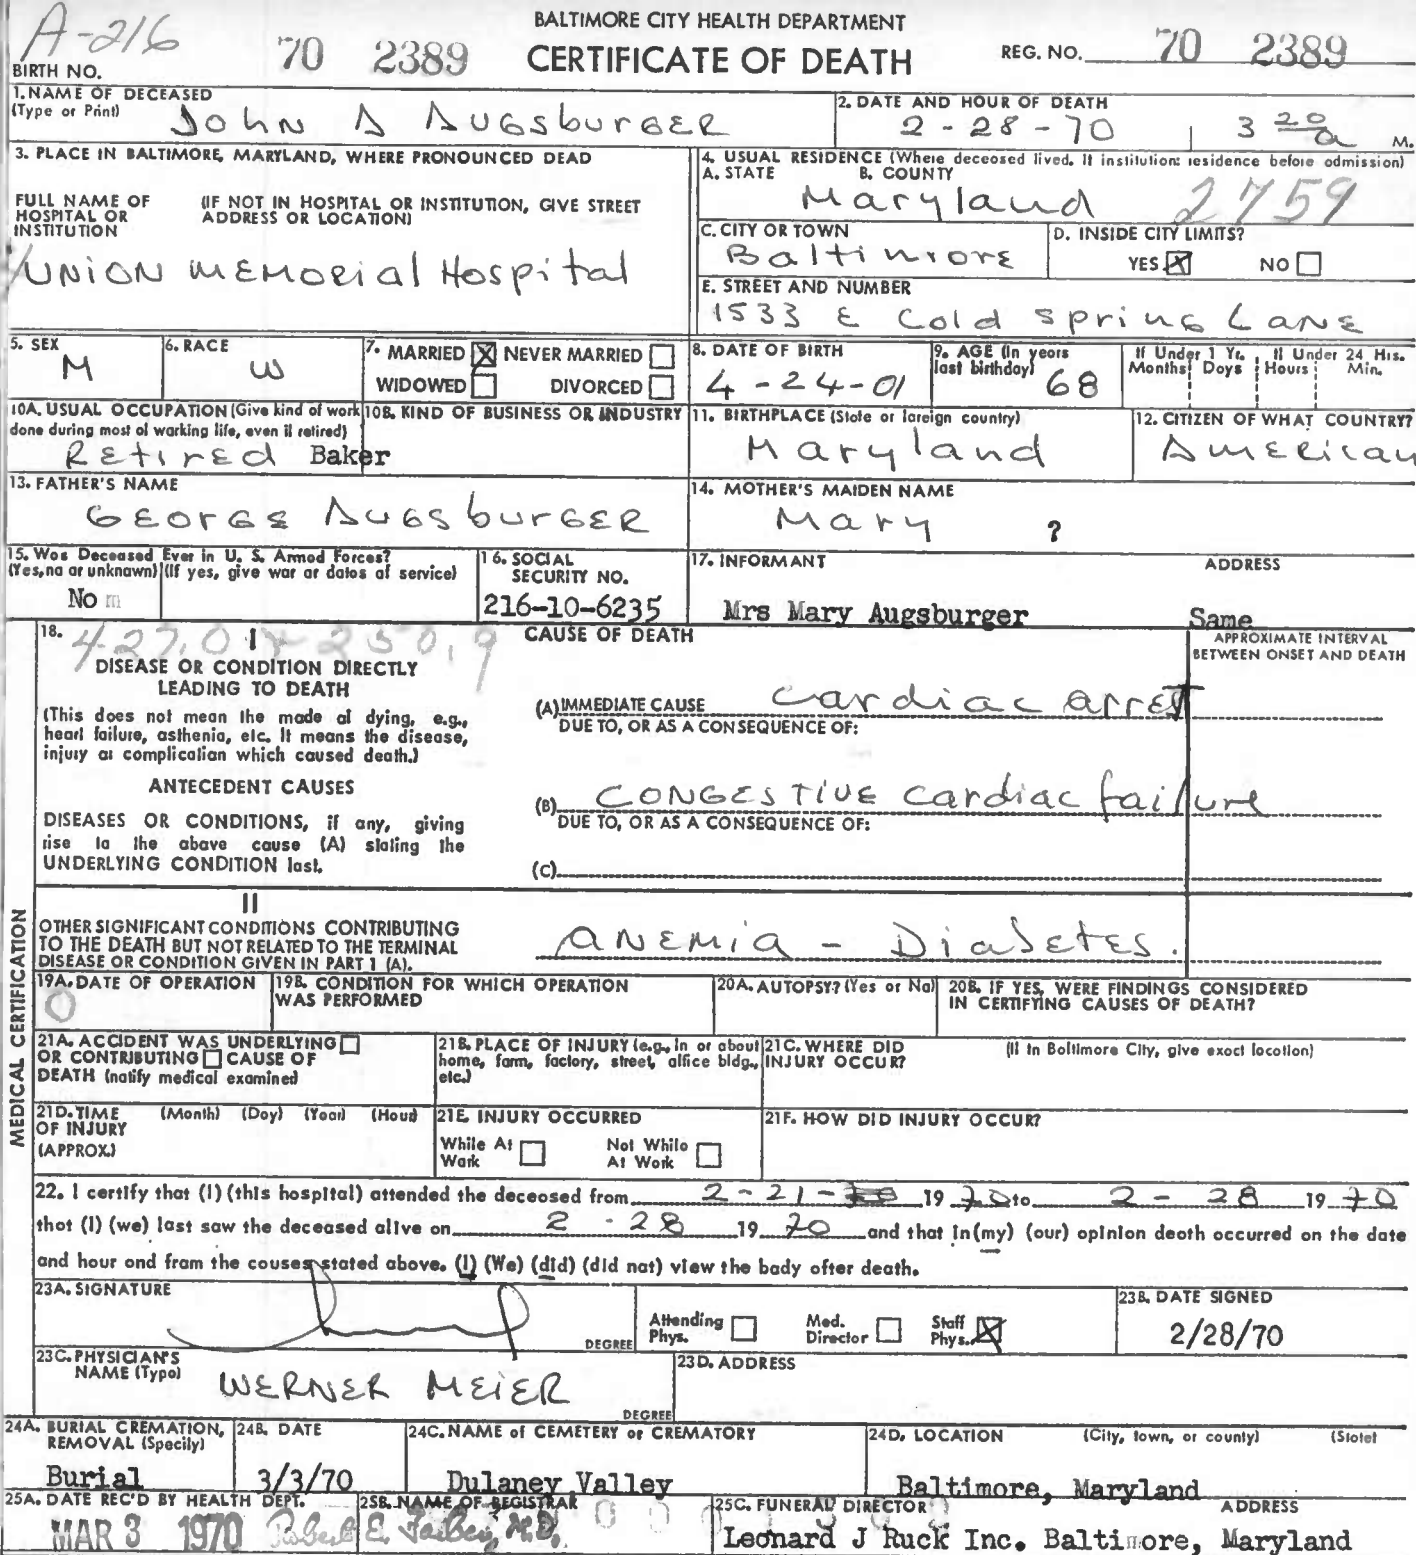 A-216
BALTIMORE CITY HEALTH DEPARTMENT
70 2389 CERTIFICATE OF DEATH REG. NO. 70 2389
BIRTH NO.
1. NAME OF DECEASED
(Type or Print) John A Augsburger
2. DATE AND HOUR OF DEATH
2-28-70 3 20 a M.
3. PLACE IN BALTIMORE, MARYLAND, WHERE PRONOUNCED DEAD
FULL NAME OF HOSPITAL OR INSTITUTION
(IF NOT IN HOSPITAL OR INSTITUTION, GIVE STREET ADDRESS OR LOCATION)
UNION MEMORIAL Hospital
4. USUAL RESIDENCE (Where deceased lived. If institution: residence before admission)
A. STATE B. COUNTY
Maryland 2759
C. CITY OR TOWN
Baltimore
D. INSIDE CITY LIMITS?
YES NO
E. STREET AND NUMBER
1533 E Cold Spring Lane
5. SEX
M
6. RACE
W
7. MARRIED NEVER MARRIED
WIDOWED DIVORCED
8. DATE OF BIRTH
4-24-01
9. AGE (In years last birthday) 68
If Under 1 Yr. If Under 24 Hrs.
Months Days Hours Min.
10A. USUAL OCCUPATION (Give kind of work done during most of working life, even if retired)
Retired Baker
10B. KIND OF BUSINESS OR INDUSTRY
11. BIRTHPLACE (State or foreign country)
Maryland
12. CITIZEN OF WHAT COUNTRY?
American
13. FATHER'S NAME
George Augsburger
14. MOTHER'S MAIDEN NAME
Mary ?
15. Was Deceased Ever in U. S. Armed Forces?
(Yes, no or unknown) (If yes, give war or dates of service)
No
16. SOCIAL SECURITY NO.
216-10-6235
17. INFORMANT ADDRESS
Mrs Mary Augsburger Same
MEDICAL CERTIFICATION
18. 427.0 + 250.9
CAUSE OF DEATH
APPROXIMATE INTERVAL BETWEEN ONSET AND DEATH
I
DISEASE OR CONDITION DIRECTLY
LEADING TO DEATH
(This does not mean the mode of dying, e.g.,
heart failure, asthenia, etc. It means the disease,
injury or complication which caused death.)
(A) IMMEDIATE CAUSE Cardiac arrest
DUE TO, OR AS A CONSEQUENCE OF:
ANTECEDENT CAUSES
DISEASES OR CONDITIONS, if any, giving
rise to the above cause (A) stating the
UNDERLYING CONDITION last.
(B) CONGESTIVE cardiac failure
DUE TO, OR AS A CONSEQUENCE OF:
(C)
II
OTHER SIGNIFICANT CONDITIONS CONTRIBUTING
TO THE DEATH BUT NOT RELATED TO THE TERMINAL
DISEASE OR CONDITION GIVEN IN PART 1 (A).
Anemia - Diabetes.
19A. DATE OF OPERATION
0
19B. CONDITION FOR WHICH OPERATION WAS PERFORMED
20A. AUTOPSY? (Yes or No)
20B. IF YES, WERE FINDINGS CONSIDERED IN CERTIFYING CAUSES OF DEATH?
21A. ACCIDENT WAS UNDERLYING
OR CONTRIBUTING CAUSE OF
DEATH (notify medical examiner)
21B. PLACE OF INJURY (e.g., in or about home, farm, factory, street, office bldg., etc.)
21C. WHERE DID INJURY OCCUR?
(If in Baltimore City, give exact location)
21D. TIME OF INJURY (APPROX.)
(Month) (Day) (Year) (Hour)
21E. INJURY OCCURRED
While At Work Not While At Work
21F. HOW DID INJURY OCCUR?
22. I certify that (I) (this hospital) attended the deceased from 2-21- 19 70 to 2-28 19 70
that (I) (we) last saw the deceased alive on 2-28 19 70 and that in (my) (our) opinion death occurred on the date
and hour and from the causes stated above. (I) (We) (did) (did not) view the body after death.
23A. SIGNATURE
DEGREE
Attending Phys. Med. Director Staff Phys.
23B. DATE SIGNED
2/28/70
23C. PHYSICIAN'S NAME (Type)
WERNER MEIER
DEGREE
23D. ADDRESS
24A. BURIAL CREMATION, REMOVAL (Specify)
Burial
24B. DATE
3/3/70
24C. NAME of CEMETERY or CREMATORY
Dulaney Valley
24D. LOCATION (City, town, or county) (State)
Baltimore, Maryland
25A. DATE REC'D BY HEALTH DEPT.
MAR 3 1970
25B. NAME OF REGISTRAR
Robert E. Farber, M.D.
25C. FUNERAL DIRECTOR ADDRESS
Leonard J Ruck Inc. Baltimore, Maryland